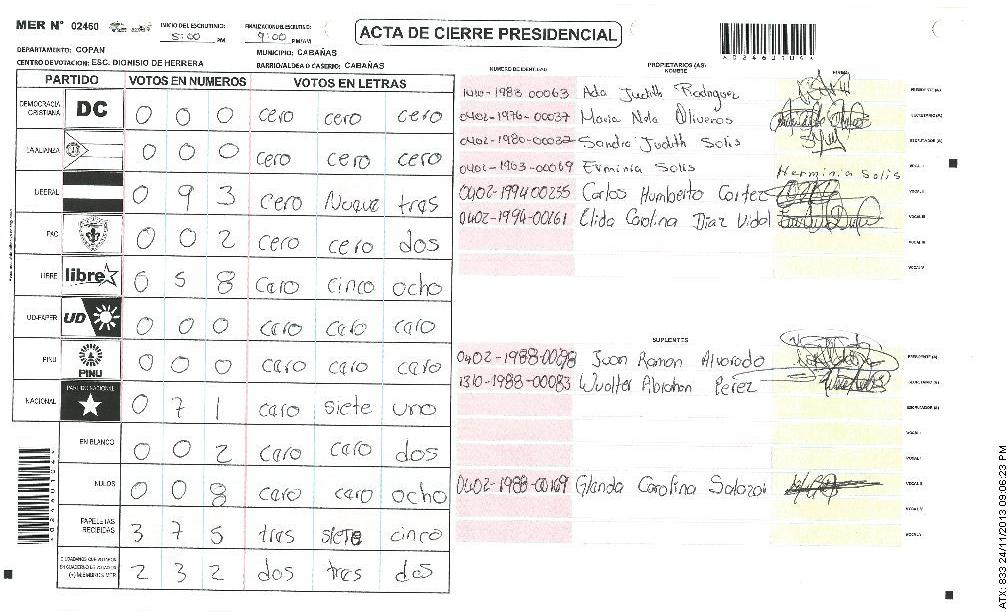 MER N° 02460
INICIO DEL ESCRUTINIO: 5:00 PM
FINALIZACION DEL ESCRUTINIO: 9:00 PM/AM
ACTA DE CIERRE PRESIDENCIAL
DEPARTAMENTO: COPAN
MUNICIPIO: CABAÑAS
CENTRO DE VOTACION: ESC. DIONISIO DE HERRERA
BARRIO/ALDEA O CASERIO: CABAÑAS
PARTIDO VOTOS EN NUMEROS VOTOS EN LETRAS
DEMOCRACIA CRISTIANA DC 0 0 0 cero cero cero
LA ALIANZA 0 0 0 cero cero cero
LIBERAL 0 9 3 cero Nueve tras
PAC 0 0 2 cero cero dos
LIBRE libre 0 5 8 caro cinco ocho
UD-FAPER UD 0 0 0 caro caro caro
PINU PINU 0 0 0 caro caro caro
NACIONAL PARTIDO NACIONAL 0 7 1 caro siete uno
EN BLANCO 0 0 2 caro caro dos
NULOS 0 0 8 caro caro ocho
PAPELETAS RECIBIDAS 3 7 5 tras siete cinco
CIUDADANOS QUE VOTARON EN CUADERNO DE VOTACION (+) MIEMBROS MER 2 3 2 dos tres dos
NUMERO DE IDENTIDAD
PROPIETARIOS (AS)
NOMBRE
FIRMA
1010-1988 00063 Ada Judith Rodriguez PRESIDENTE (A)
0402-1976-00037 Maria Nola Oliveros SECRETARIO (A)
0402-1980-00032 Sandra Judith Solis ESCRUTADOR (A)
0402-1963-00069 Erminia Solis Herminia Solis VOCAL I
0402-1994 00235 Carlos Humberto Cortez VOCAL II
0402-1994-00161 Elida Carolina Diaz Vidal VOCAL III
VOCAL IV
VOCAL V
SUPLENTES
0402-1988-0098 Juan Ramon Alvorado PRESIDENTE (A)
1310-1988-00083 Wualter Abrahan Perez SECRETARIO (A)
ESCRUTADOR (A)
VOCAL I
VOCAL II
0402-1988-00169 Glenda Carolina VOCAL III
VOCAL IV
VOCAL V
0 2 4 6 0 1 0 4
ATX: 833 24/11/2013 09:06:23 PM